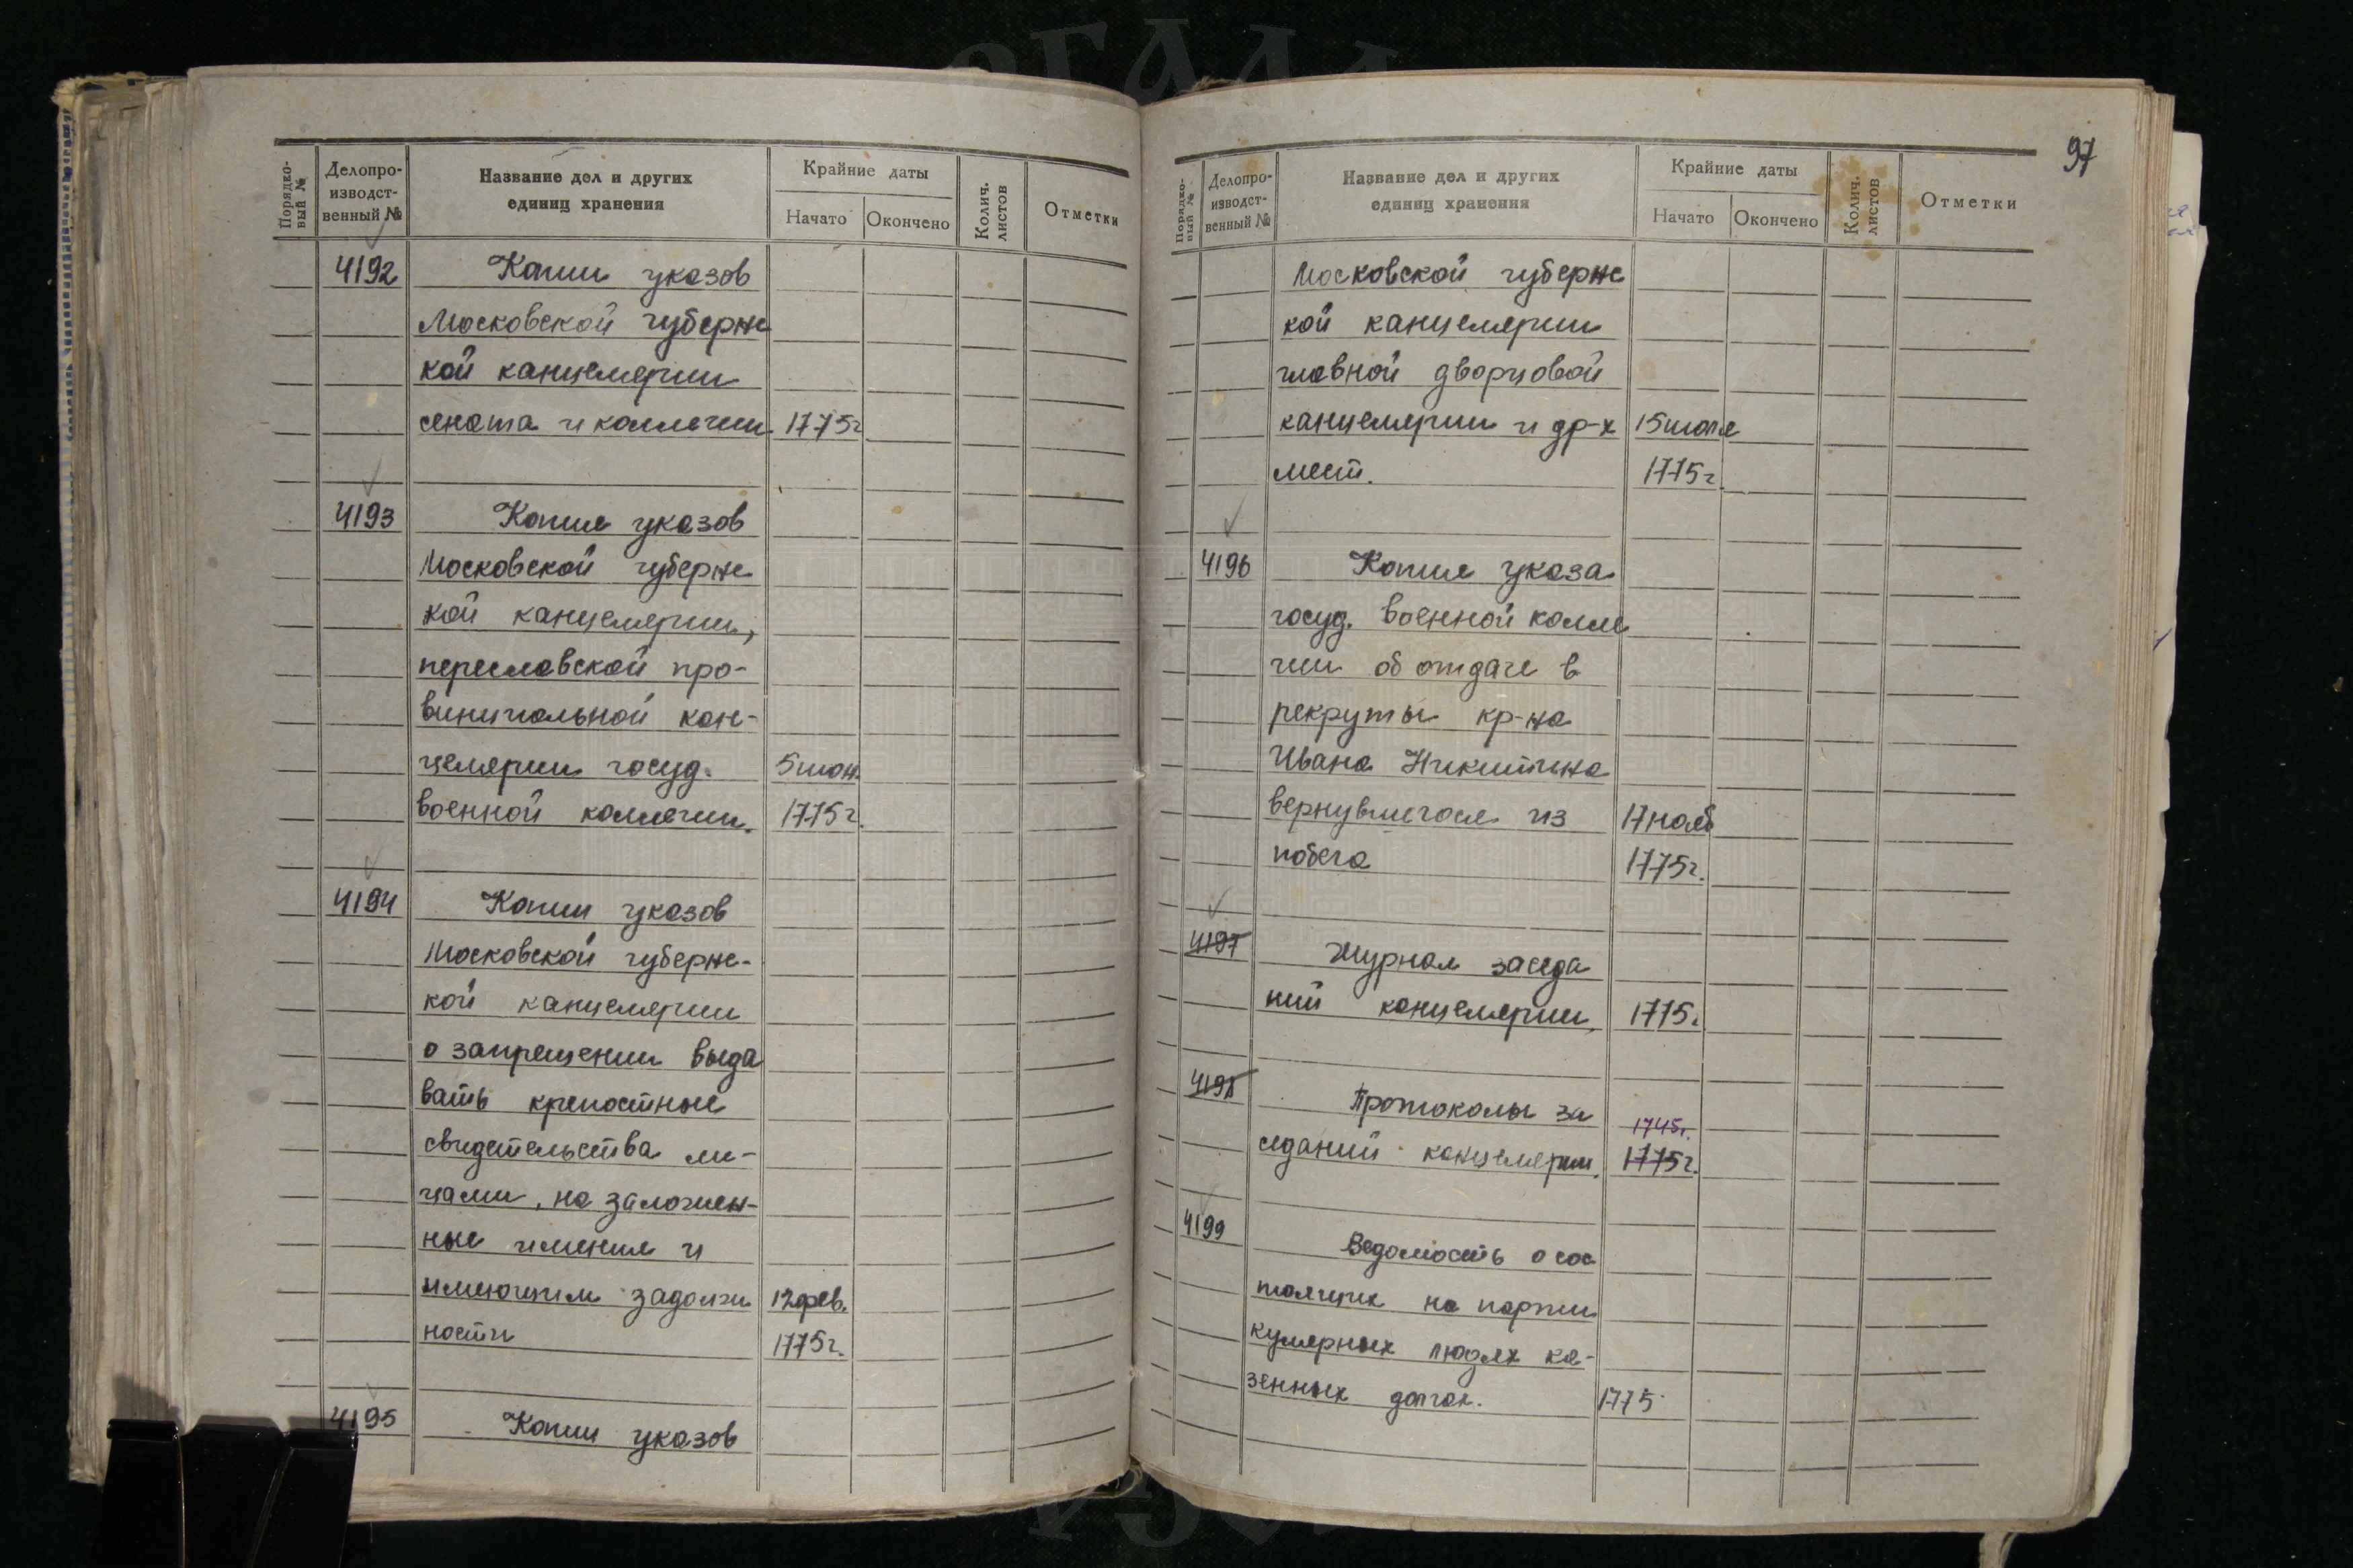 Порядко-
вый №
Делопро-
изводст-
венный №
Название дел и других
единиц хранения
Крайние даты
Начато
Окончено
Колич.
листов
Отметки
4192 Копии указов
Московской губернс
кой канцелярии
сената и коллегии 1775г
4193 Копия указов
Московской губернс
кой канцелярии,
переславской про-
винциальной кан-
целярии госуд. 5 июн.
военной коллегии. 1775г.
4194 Копии указов
Московской губернс-
кой канцелярии
о запрещении выда
вать крепостные
свидетельства ли-
цами, на заложен-
ные имения и
имеющим задолжн 12 фев.
ности 1775г.
4195 Копии указов
97
Порядко-
вый №
Делопро-
изводст-
венный №
Название дел и других
единиц хранения
Крайние даты
Начато
Окончено
Колич.
листов
Отметки
Московской губернс
кой канцелярии
главной дворцовой
канцелярии и др-х 15 июля
мест. 1775г.
4196 Копия указа
госуд. военной колле
гии об отдаче в
рекруты кр-на
Ивана Никитина
вернувшегося из 17 нояб
побега 1775г.
4197 Журнал заседа
ний канцелярии, 1775г.
4198 Протоколы за 1745г.
седаний канцелярии. 1775г.
4199 Ведомость о сос
тоящих на парти
кулярных людях ка-
зенных долгах. 1775